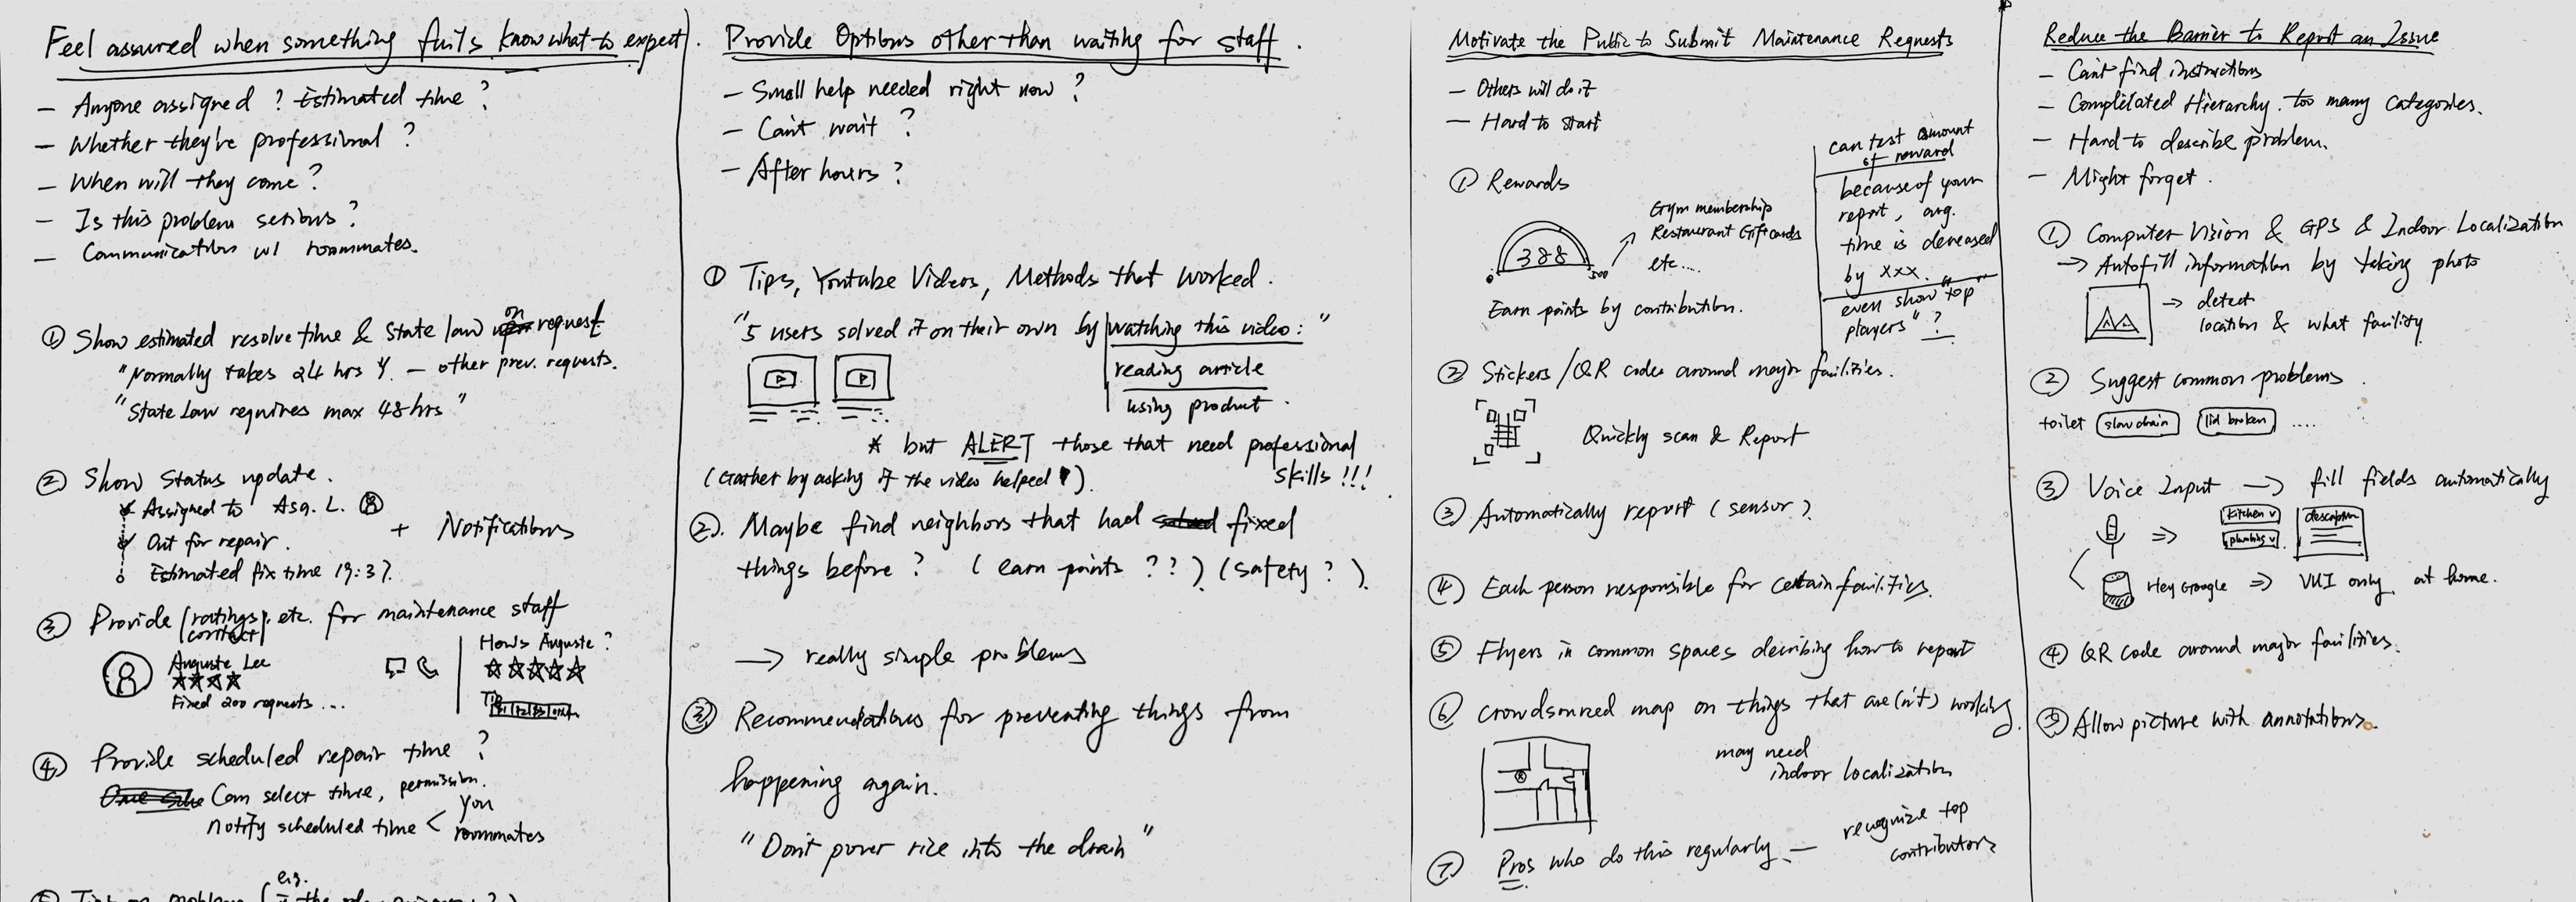 Feel assured when something fails. know what to expect.
— Anyone assigned ? Estimated time ?
— Whether they're professional ?
— When will they come ?
— Is this problem serious ?
— Communication w/ roommates.
① Show estimated resolve time & State law on request
"Normally takes 24 hrs — other prev. requests.
"State Law requires max 48 hrs"
② Show Status update.
Assigned to Asa. L.
Out for repair.
Estimated fix time 19:37.
+ Notifications
③ Provide ratings, etc. for maintenance staff
contact
Auguste Lee
Fixed 200 requests ...
How's Auguste ?
Tip
④ Provide scheduled repair time ?
Can select time, permission.
notify scheduled time < you
roommates
⑤ Tips on problem (e.g.
Provide Options other than waiting for staff.
— Small help needed right now ?
— Can't wait ?
— After hours ?
① Tips, Youtube Videos, Methods that worked.
"5 users solved it on their own by watching this video: "
reading article
using product.
* but ALERT those that need professional
skills !!!
(Gather by asking if the video helped).
②. Maybe find neighbors that had solved fixed
things before ? ( earn points ??) (safety ? ).
→ really simple problems
③ Recommendations for preventing things from
happening again.
"Don't pover rice into the drain"
Motivate the Public to Submit Maintenance Requests
— Others will do it
— Hard to start
① Rewards
388
500
Gym membership
Restaurant Giftcards
etc....
Earn points by contribution.
can test amount
of reward
because of your
report, avg.
time is decreased
by xxx.
even show "top
players" ?
② Stickers /QR codes around major facilities.
Quickly scan & Report
③ Automatically report ( sensor ).
④ Each person responsible for certain facilities.
⑤ Flyers in common spaces decribing how to report
⑥ crowdsourced map on things that are(n't) working.
may need
indoor localization
⑦. Pros who do this regularly. — recognize top
contributors
Reduce the Barrier to Report an Issue
— Can't find instructions
— Complicated Hierarchy. too many categories.
— Hard to describe problem.
— Might forget.
① Computer Vision & GPS & Indoor Localization
→ Autofill information by taking photo
→ detect
location & what facility
② Suggest common problems.
toilet slow drain lid broken ....
③ Voice Input → fill fields automatically
kitchen v
plumbing v
description
Hey Google ⇒ VUI only at home.
④ QR code around major facilities.
⑤ Allow picture with annotations.